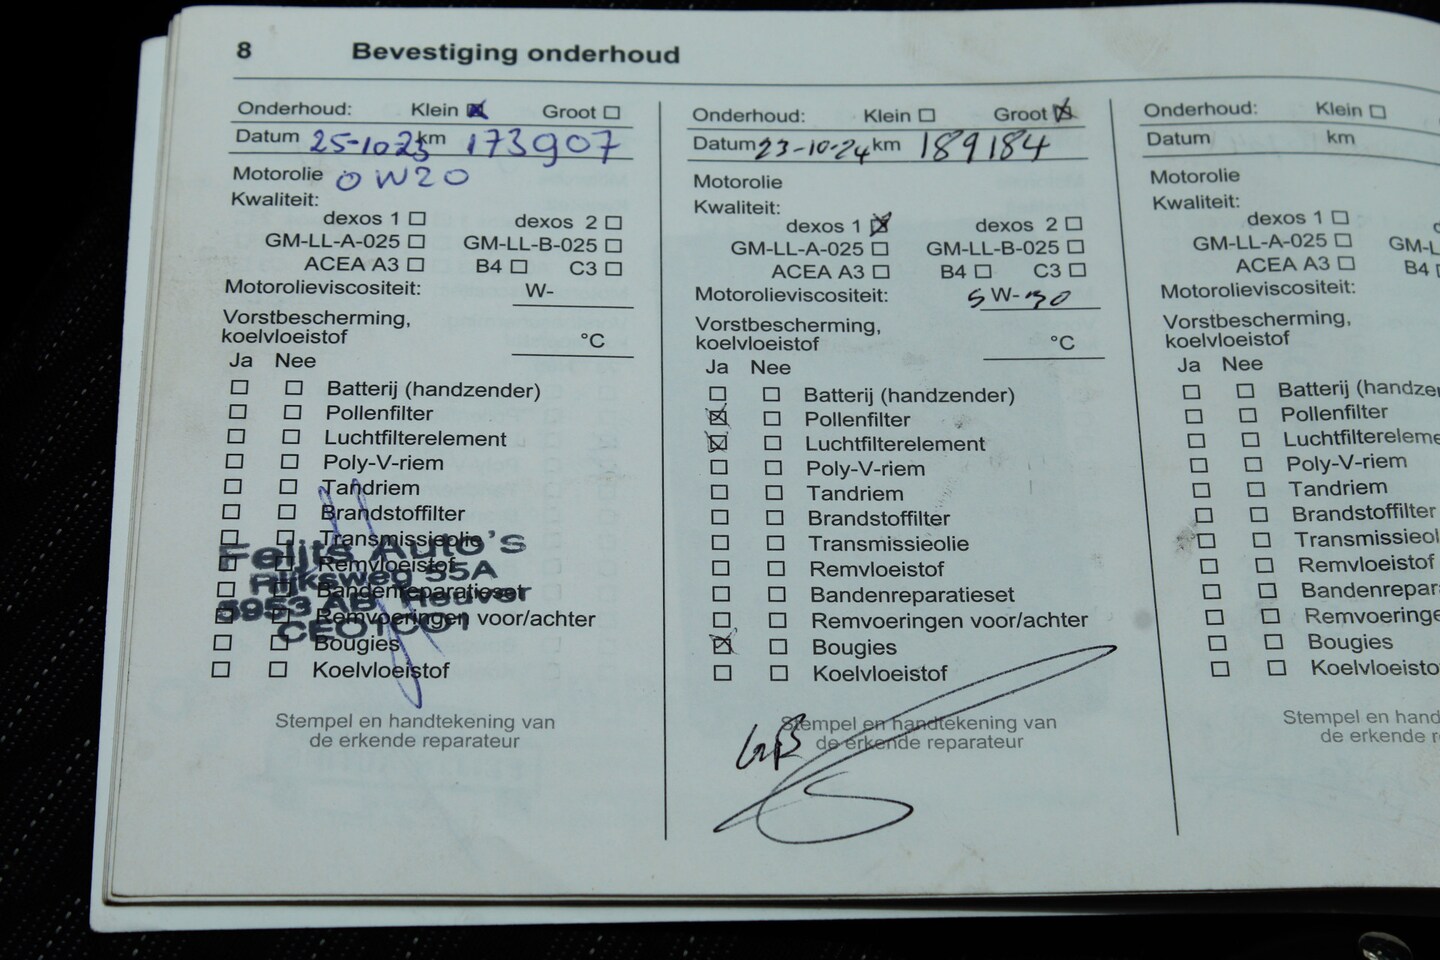 8 Bevestiging onderhoud
Onderhoud: Klein Groot
Datum 25-10-23 km 173907
Motorolie 0W20
Kwaliteit:
dexos 1 dexos 2
GM-LL-A-025 GM-LL-B-025
ACEA A3 B4 C3
Motorolieviscositeit: W-
Vorstbescherming,
koelvloeistof °C
Ja Nee
Batterij (handzender)
Pollenfilter
Luchtfilterelement
Poly-V-riem
Tandriem
Brandstoffilter
Transmissieolie
Remvloeistof
Bandenreparatieset
Remvoeringen voor/achter
Bougies
Koelvloeistof
Felits Auto's
Rijksweg 55A
5953 AB Reuver
Stempel en handtekening van
de erkende reparateur
Onderhoud: Klein Groot
Datum 23-10-24 km 189184
Motorolie
Kwaliteit:
dexos 1 dexos 2
GM-LL-A-025 GM-LL-B-025
ACEA A3 B4 C3
Motorolieviscositeit: 5 W-30
Vorstbescherming,
koelvloeistof °C
Ja Nee
Batterij (handzender)
Pollenfilter
Luchtfilterelement
Poly-V-riem
Tandriem
Brandstoffilter
Transmissieolie
Remvloeistof
Bandenreparatieset
Remvoeringen voor/achter
Bougies
Koelvloeistof
Stempel en handtekening van
de erkende reparateur
Onderhoud: Klein
Datum km
Motorolie
Kwaliteit:
dexos 1
GM-LL-A-025 GM-L
ACEA A3 B4
Motorolieviscositeit:
Vorstbescherming,
koelvloeistof
Ja Nee
Batterij (handze
Pollenfilter
Luchtfiltereleme
Poly-V-riem
Tandriem
Brandstoffilter
Transmissieol
Remvloeistof
Bandenrepar
Remvoeringe
Bougies
Koelvloeisto
Stempel en hand
de erkende r